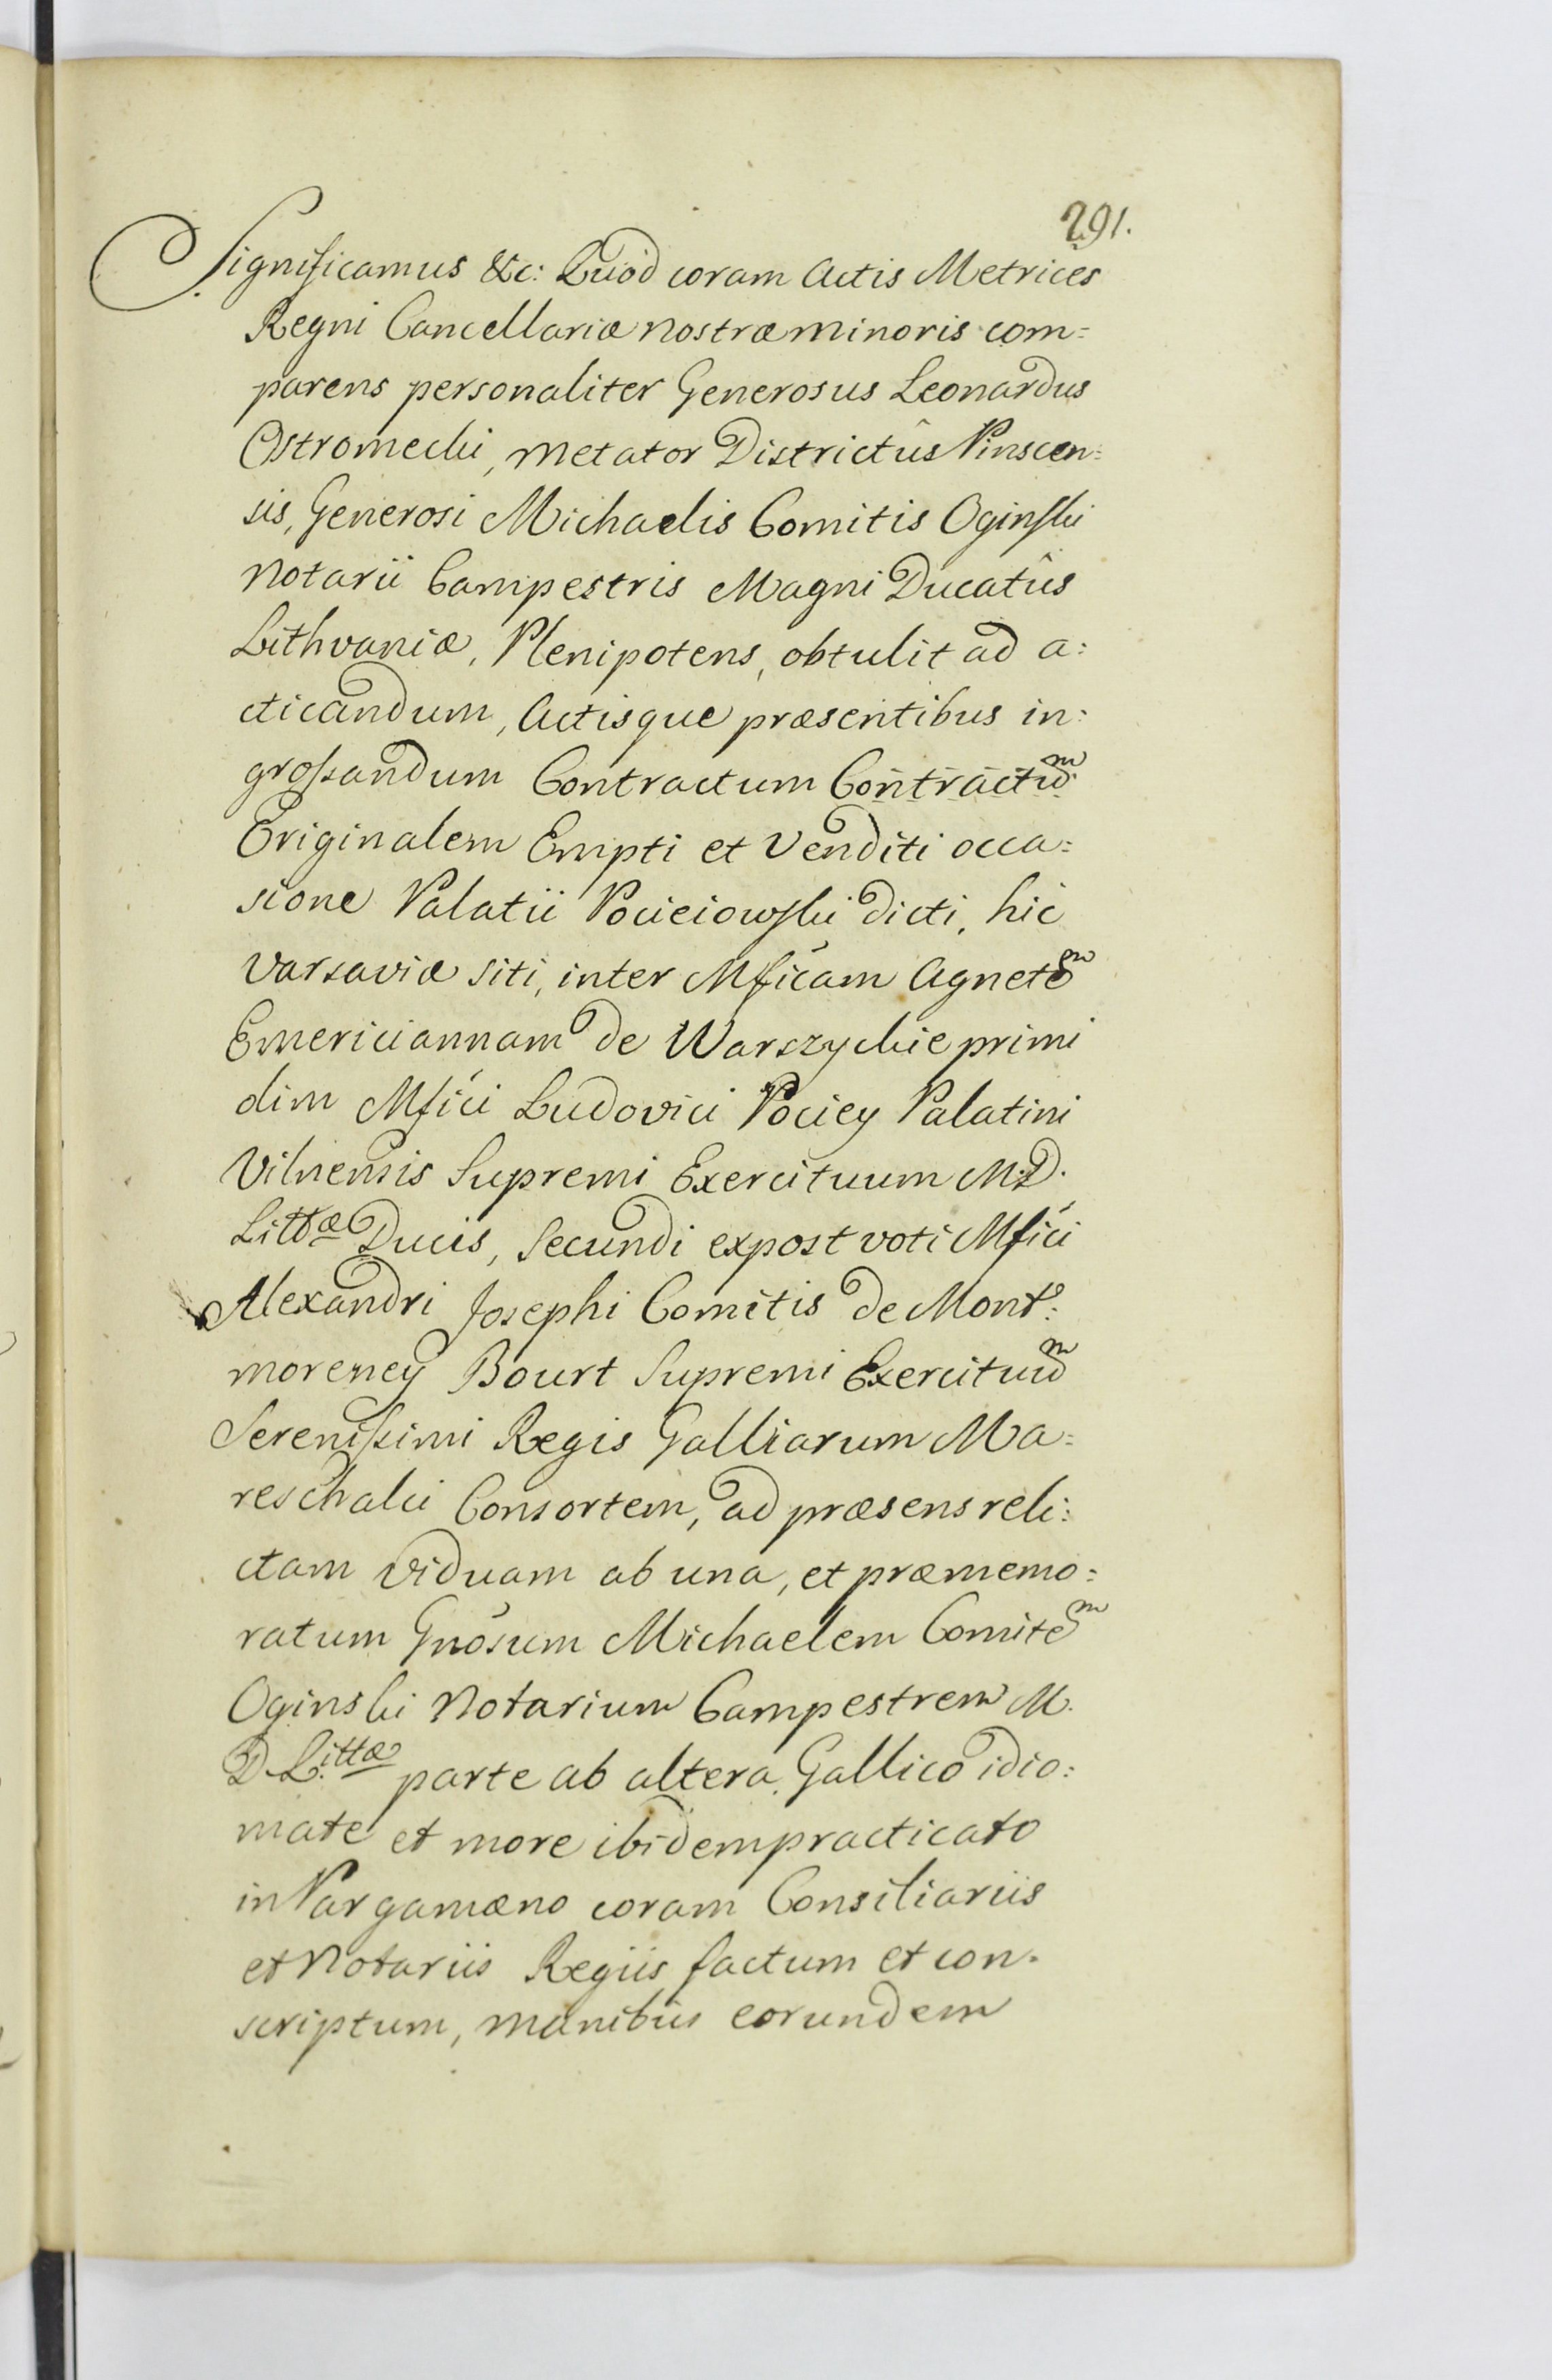 291.
Significamus &c: Quod coram Actis Metrices
Regni Cancellariæ nostræ minoris com=
parens personaliter Generosus Leonardus
Ostromecki, Metator Districtûs Pinscen=
sis, Generosi Michaelis Comitis Oginski
Notarii Campestris Magni Ducatûs
Lithvaniæ, Plenipotens, obtulit ad a=
cticandum, Actisque præsentibus in=
grossandum Contractum Contractum
Originalem Empti et Venditi occa=
sione Palatii Pocieiowski dicti, hic
Varsaviæ siti, inter Mficam Agnetem
Emericiannam de Warszyckie primi
olim Mfici Ludovici Pociey Palatini
Vilnensis Supremi Exercituum M.D.
Littæ Ducis, Secundi expost voti Mfici
Alexandri Josephi Comitis de Mont=
morency Bourt Supremi Exercituum
Serenissimi Regis Galliarum Ma=
reschalci Consortem, ad præsens reli=
ctam Viduam ab una, et præmemo=
ratum Gnosum Michaelem Comitem
Oginski Notarium Campestrem M.
D. Littæ parte ab altera, Gallico idio=
mate et more ibidem practicato
in Pargamæno coram Consiliariis
et Notariis Regiis factum et con=
scriptum, manibus eorundem